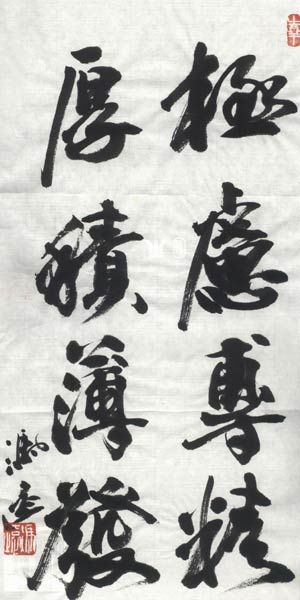 極慮專精
厚積薄發